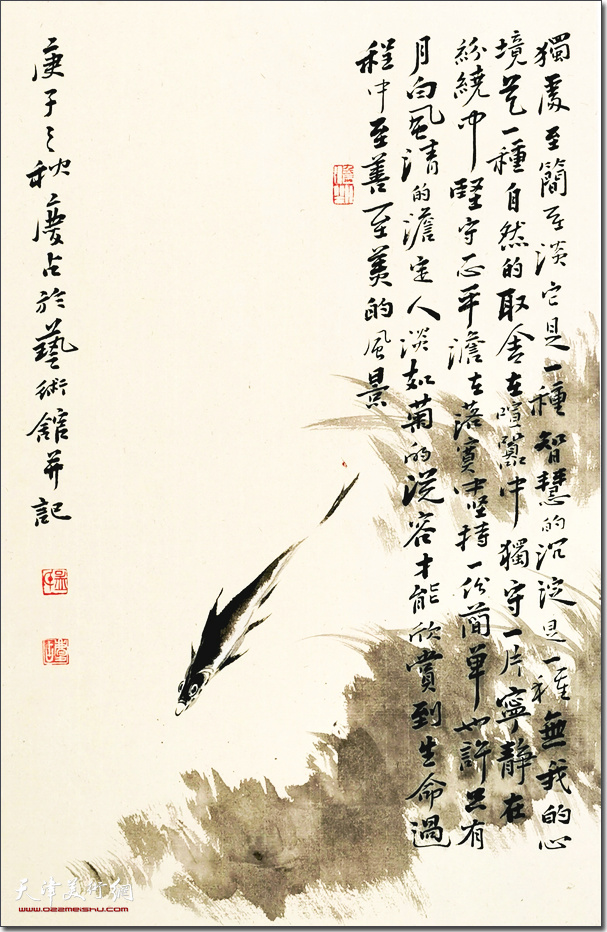 獨處至簡至淡它是一種智慧的沉淀是一種無我的心
境是一種自然的取舍在喧囂中獨守一片寧靜在
紛繞中堅守一正平澹在落寞中坚持一份簡單也許只有
月白風清的澹定人淡如菊的從容才能欣賞到生命過
程中至善至美的風景
庚子之秋慶占於藝術館并記
天津美术網
www.022meishu.com